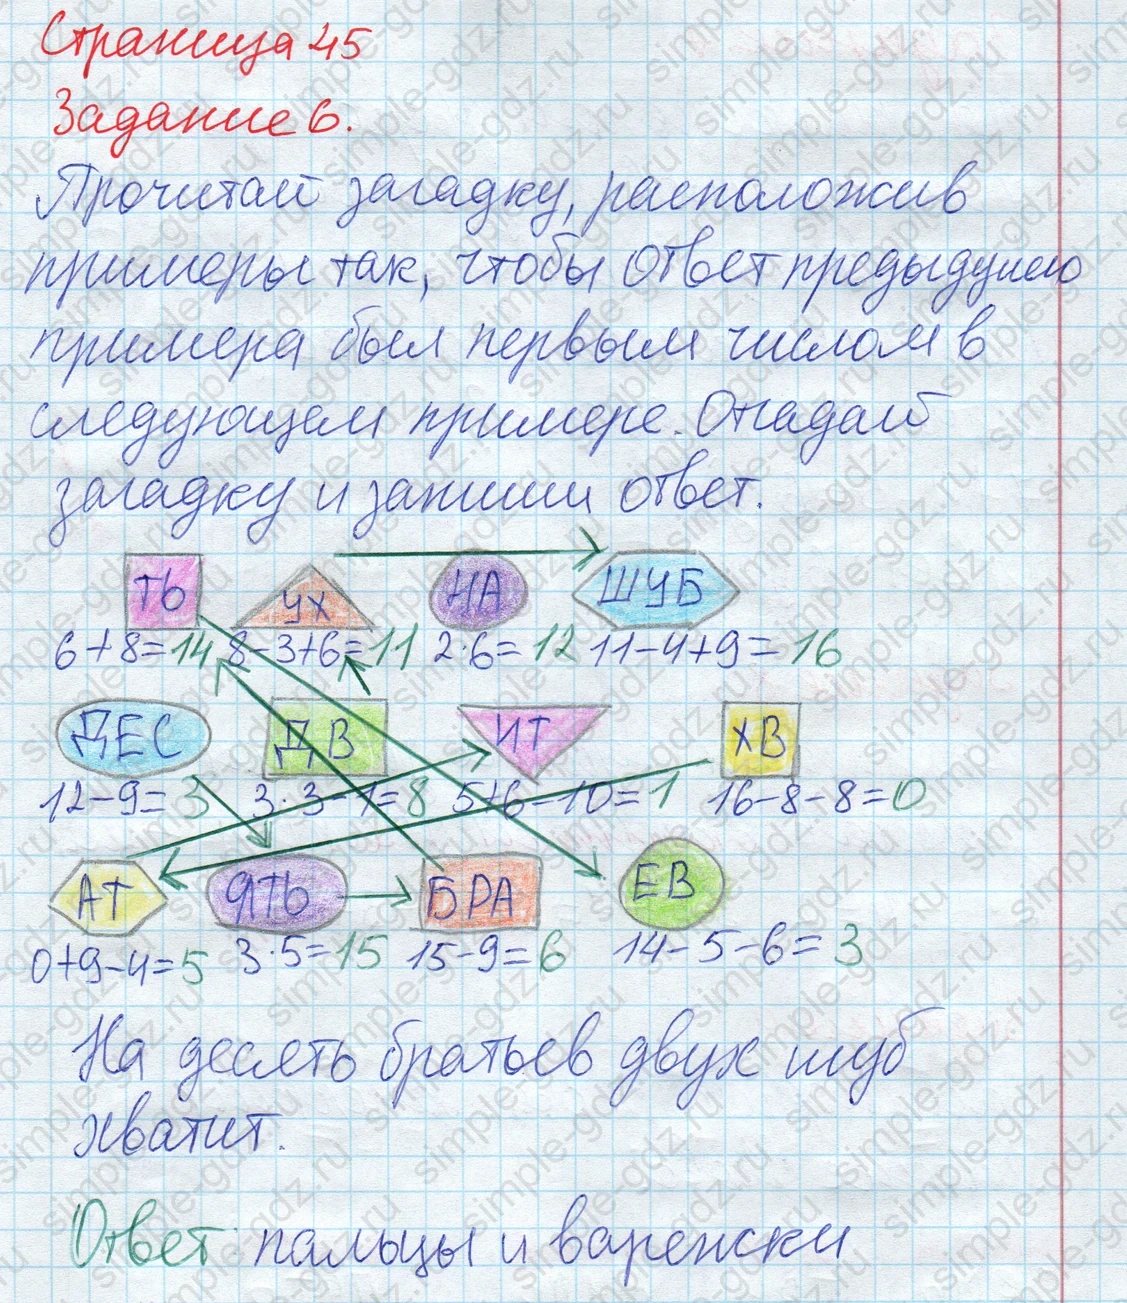 Страница 45
Задание 6.
Прочитай загадку, расположив
примеры так, чтобы ответ предыдущего
примера был первым числом в
следующем примере. Отгадай
загадку и запиши ответ.
ТЬ УХ НА ШУБ
6+8=14 8-3+6=11 2·6=12 11-4+9=16
ДЕС ДВ ИТ ХВ
12-9=3 3·3-1=8 5+6-10=1 16-8-8=0
АТ ЯТЬ БРА ЕВ
0+9-4=5 3·5=15 15-9=6 14-5-6=3
На десять братьев двух шуб
хватит.
Ответ пальцы и варежски
simple-gdz.ru